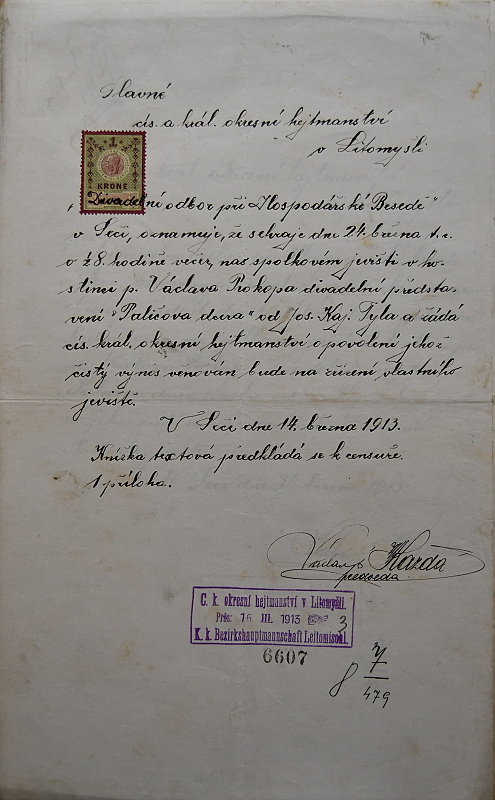 Slavné
cís. a král. okresní hejtmanství
v Litomyšli
1
KRONE
"Divadelní odbor při Hospodářské Besedě"
v Seči, oznamuje, že sehraje dne 24. března t. r.
o ½8. hodině večer, na spolkovém jevišti v ho-
stinci p. Václava Prokopa divadelní předsta-
vení "Paličova dcera" od Jos. Kaj. Tyla a žádá
cís. král. okresní hejtmanství o povolení jehož
čistý výnos věnován bude na zřízení vlastního
jeviště.
V Seči dne 14. března 1913.
Knížka textová předkládá se k censuře.
1 příloha.
Václav Kazda
předseda.
C. k. okresní hejtmanství v Litomyšli.
Präs. 16 III. 1913 3
K. k. Bezirkshauptmannschaft Leitomischl.
6607
8 7
479